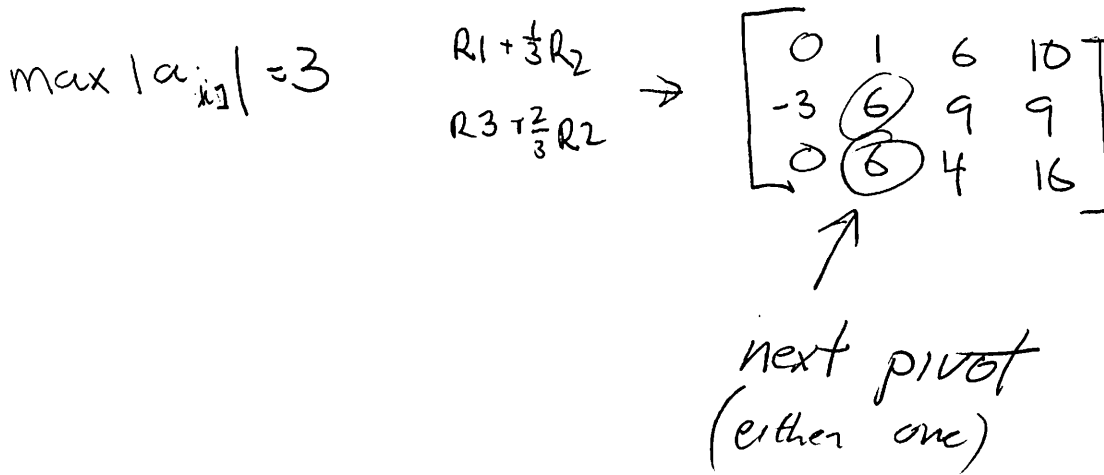 max |a_{i1}| = 3
R1 + 1/3 R2
R3 + 2/3 R2
→
0 1 6 10
-3 6 9 9
0 6 4 16
next pivot
(either one)